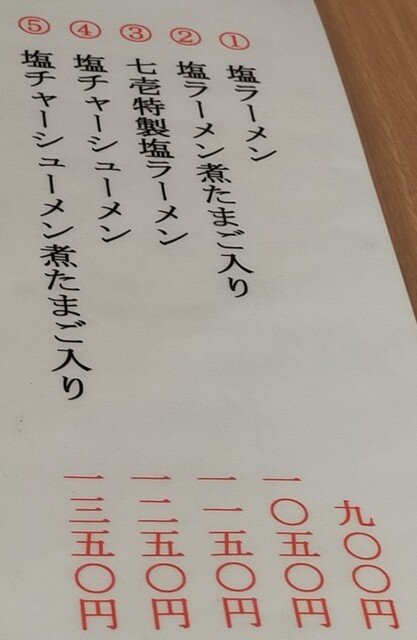 ① 塩ラーメン 九〇〇円
② 塩ラーメン煮たまご入り 一〇五〇円
③ 七壱特製塩ラーメン 一一五〇円
④ 塩チャーシューメン 一二五〇円
⑤ 塩チャーシューメン煮たまご入り 一三五〇円